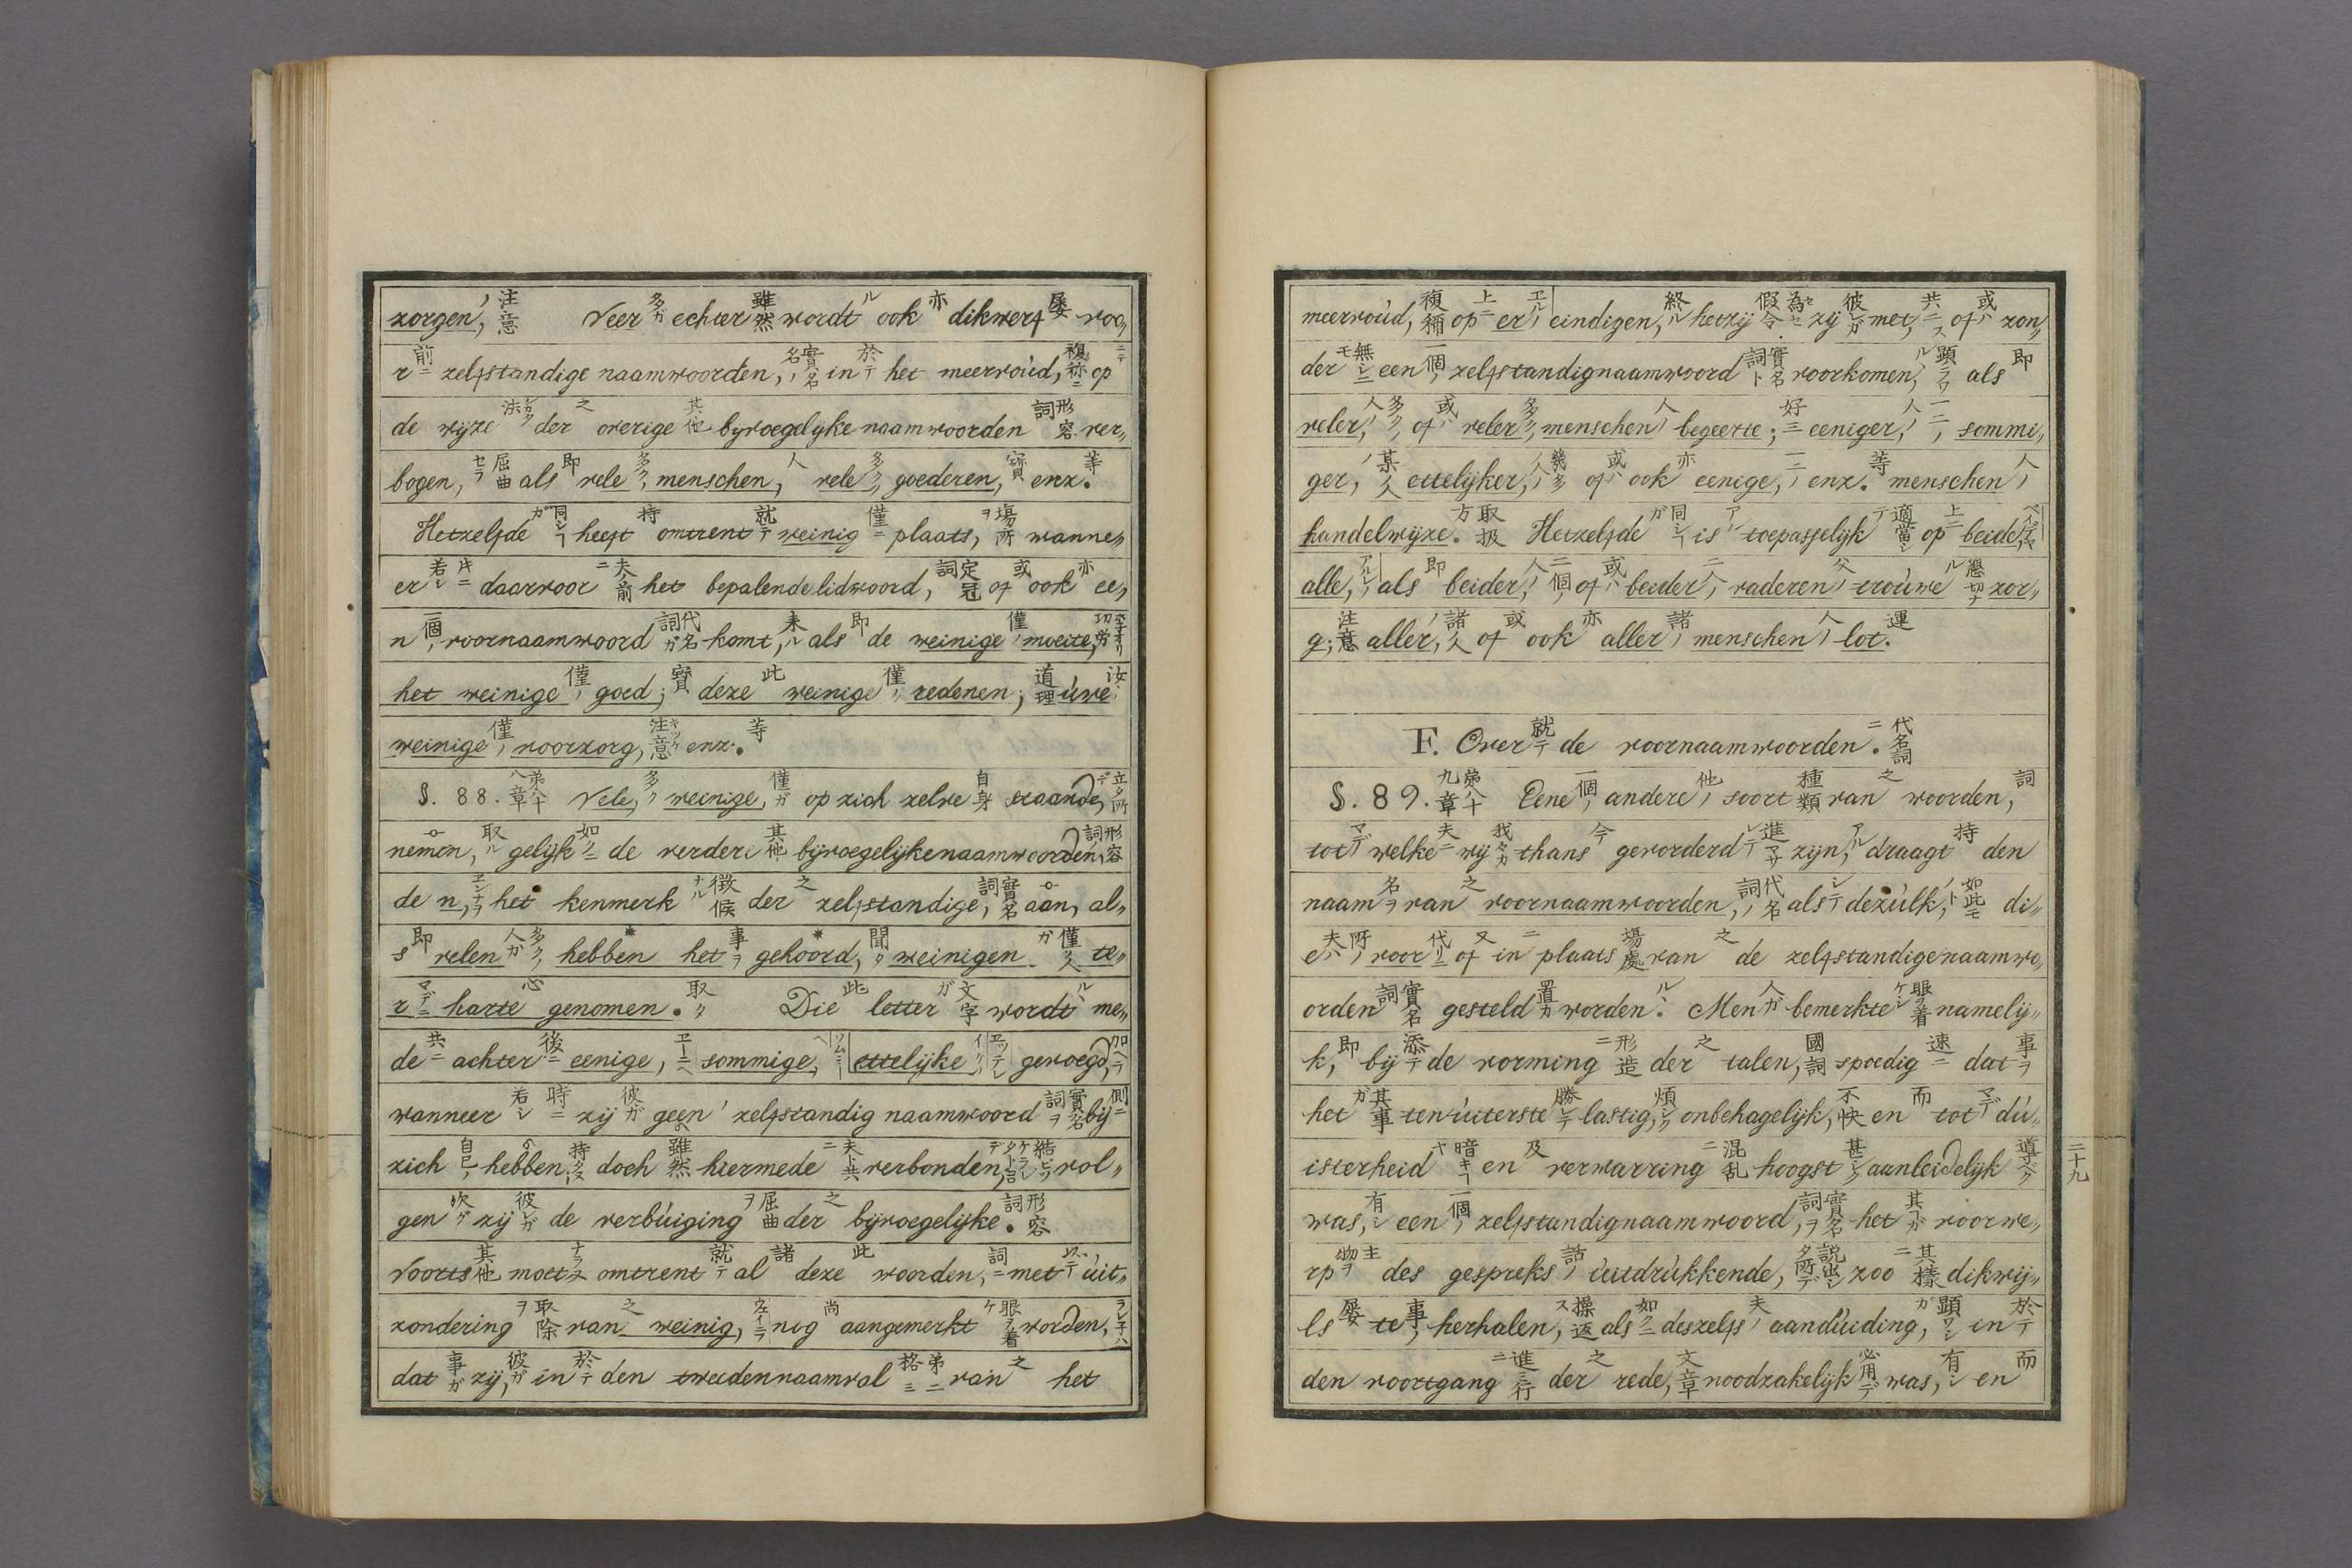 zorgen, 注意 Veel 多ガ echter 雖然 wordt ル ook 亦 dikwerf 屡 voo„
r 前ニ zelfstandige naamwoorden, 實名名ノ in 於テ het meervoud, 複称ニ op ニテ
de wijze 法 der 之 overige 其他 bijvoegelijke naamwoorden 形容詞 ver„
bogen, 屈曲セラ als 即 vele 多ク menschen, 人 vele 多ク goederen, 寳 enz. 等
Hetzelfde 同シフガ heeft 持 omtrent 就テ weinig 僅ニ plaats, 塲所ヲ wanne„
er 若シ daarvoor 夫ノ前ニ het bepalende lidwoord, 定冠詞 of 或 ook 亦 ee„
n 一個ノ voornaamwoord 代名詞ガ komt, 来ル als 即 de weinige 僅ノ moeite,
het weinige 僅ノ goed; 寳 deze 此 weinige 僅ノ redenen; 道理 uwe 汝ノ
weinige 僅ノ voorzorg, 注意 enz. 等
S. 88. 第八十八章 Vele, 多ク weinige, 僅ガ op zich zelve 自身 staande, 立タ所デ
nemen, 取ル gelijk 如クニ de verdere 其他 bijvoegelijke naamwoorden, 形容詞
de n, エンナヲ het kenmerk 徴候ナル der 之 zelfstandige, 實名詞 aan, al„
s 即 velen 多ク人ガ hebben het 事ヲ gehoord, 聞 weinigen 僅ノ人ガ te„
r マデニ harte 心 genomen. 取 Die 此 letter 文字ガ wordt ルヽ me„
de 共ニ achter 後ニ eenige, sommige, ettelijke gevoegd, 加ヘラ
wanneer 若シ時ニ zij 彼ガ geen zelfstandig naamwoord 實名詞ヲ bij 側ニ
zich 自己ノ hebben, 持タ doch 雖然 hiermede 夫ト共ニ verbonden, 結ビツケラレタト言デ vol„
gen 次グ zij 彼レガ de verbuiging 屈曲ヲ der 之 bijvoegelijke. 形容詞
Voorts 其他 moet omtrent 就テ al 諸 deze 此 woorden, 詞ニ met 以テ uit„
zondering 取除ヲ van 之 weinig, ウェイニヲ nog 尚 aangemerkt 眼ヲ着ケ worden,
dat 事ガ zij, 彼ガ in 於テ den tweeden naamval 第二格 van 之 het
meervoud, 複称 op 上ニ er, エル eindigen, 終ル hetzij 假令 為セ zij 彼レガ met, 共ニ of 或ハ zon„
der 無シニモ een 一個ノ zelfstandignaamwoord 實名詞ト voorkomen, 顕ラワル als 即
veler, 多ク人ノ of 或 veler 多ク menschen 人ノ begeerte; 好ミ eeniger, 一二人ノ sommi„
ger, 某人ノ ettelijker, 幾多人ノ of 或ハ ook 亦 eenige, 一二ノ enz. 等 menschen 人ノ
handelwijze. 取扱方 Hetzelfde 同シフガ is アル toepasselijk 適當シテ op 上ニ beide, ベイデ
alle, アルレ als 即 beider, 二個人ノ of 或ハ beider 二人ノ vaderen 父ノ trouwe 懇切ナル zor„
g; 注意 aller, 諸人ノ of 或 ook 亦 aller 諸ノ menschen 人ノ lot. 運
F. Over 就テ de voornaamwoorden. 代名詞ニ
S. 89. 第八十九章 Eene 一個ノ andere 他ノ soort 種類 van 之 woorden, 詞
tot マデ welke 夫ニ wij 我々ガ thans 今 gevorderd 進マサレテ zijn, アル draagt 持 den
naam 名ヲ van 之 voornaamwoorden, 代名詞ノ als シテ dezulk, 如此モノト di„
e 夫ハ所ノ voor 代リニ of 又 in ニ plaats 塲處 van 之 de zelfstandigenaamwo„
orden 實名詞 gesteld 置カ worden. ルヽ Men 人ガ bemerkte 眼ヲ着ケシ namelij„
k, 即 bij 添テ de vorming 形造ニ der 之 talen, 國詞 spoedig 速ニ dat 事ヲ
het 其事ガ ten uiterste 勝レテ lastig, 煩シク onbehagelijk, 不快 en 而 tot マデ du„
isterheid 暗キフヤ en 及 verwarring 混乱ニ hoogst 甚シク aanleidelijk 導ベク
was, 有シ een 一個ノ zelfstandignaamwoord, 實名詞ヲ het 其フガ voorwe„
rp 主物ヲ des gespreks 話ノ uitdrukkende, 説出シタ所デ zoo 其様ニ dikwij„
ls 屡 te 事ノ herhalen, 操返ス als 如クニ deszelfs 夫ノ aanduiding, 顕ワシガ in 於テ
den voortgang 進ミ行ニ der 之 rede, 文章 noodzakelijk 必用デ was, 有シ en 而
二十九